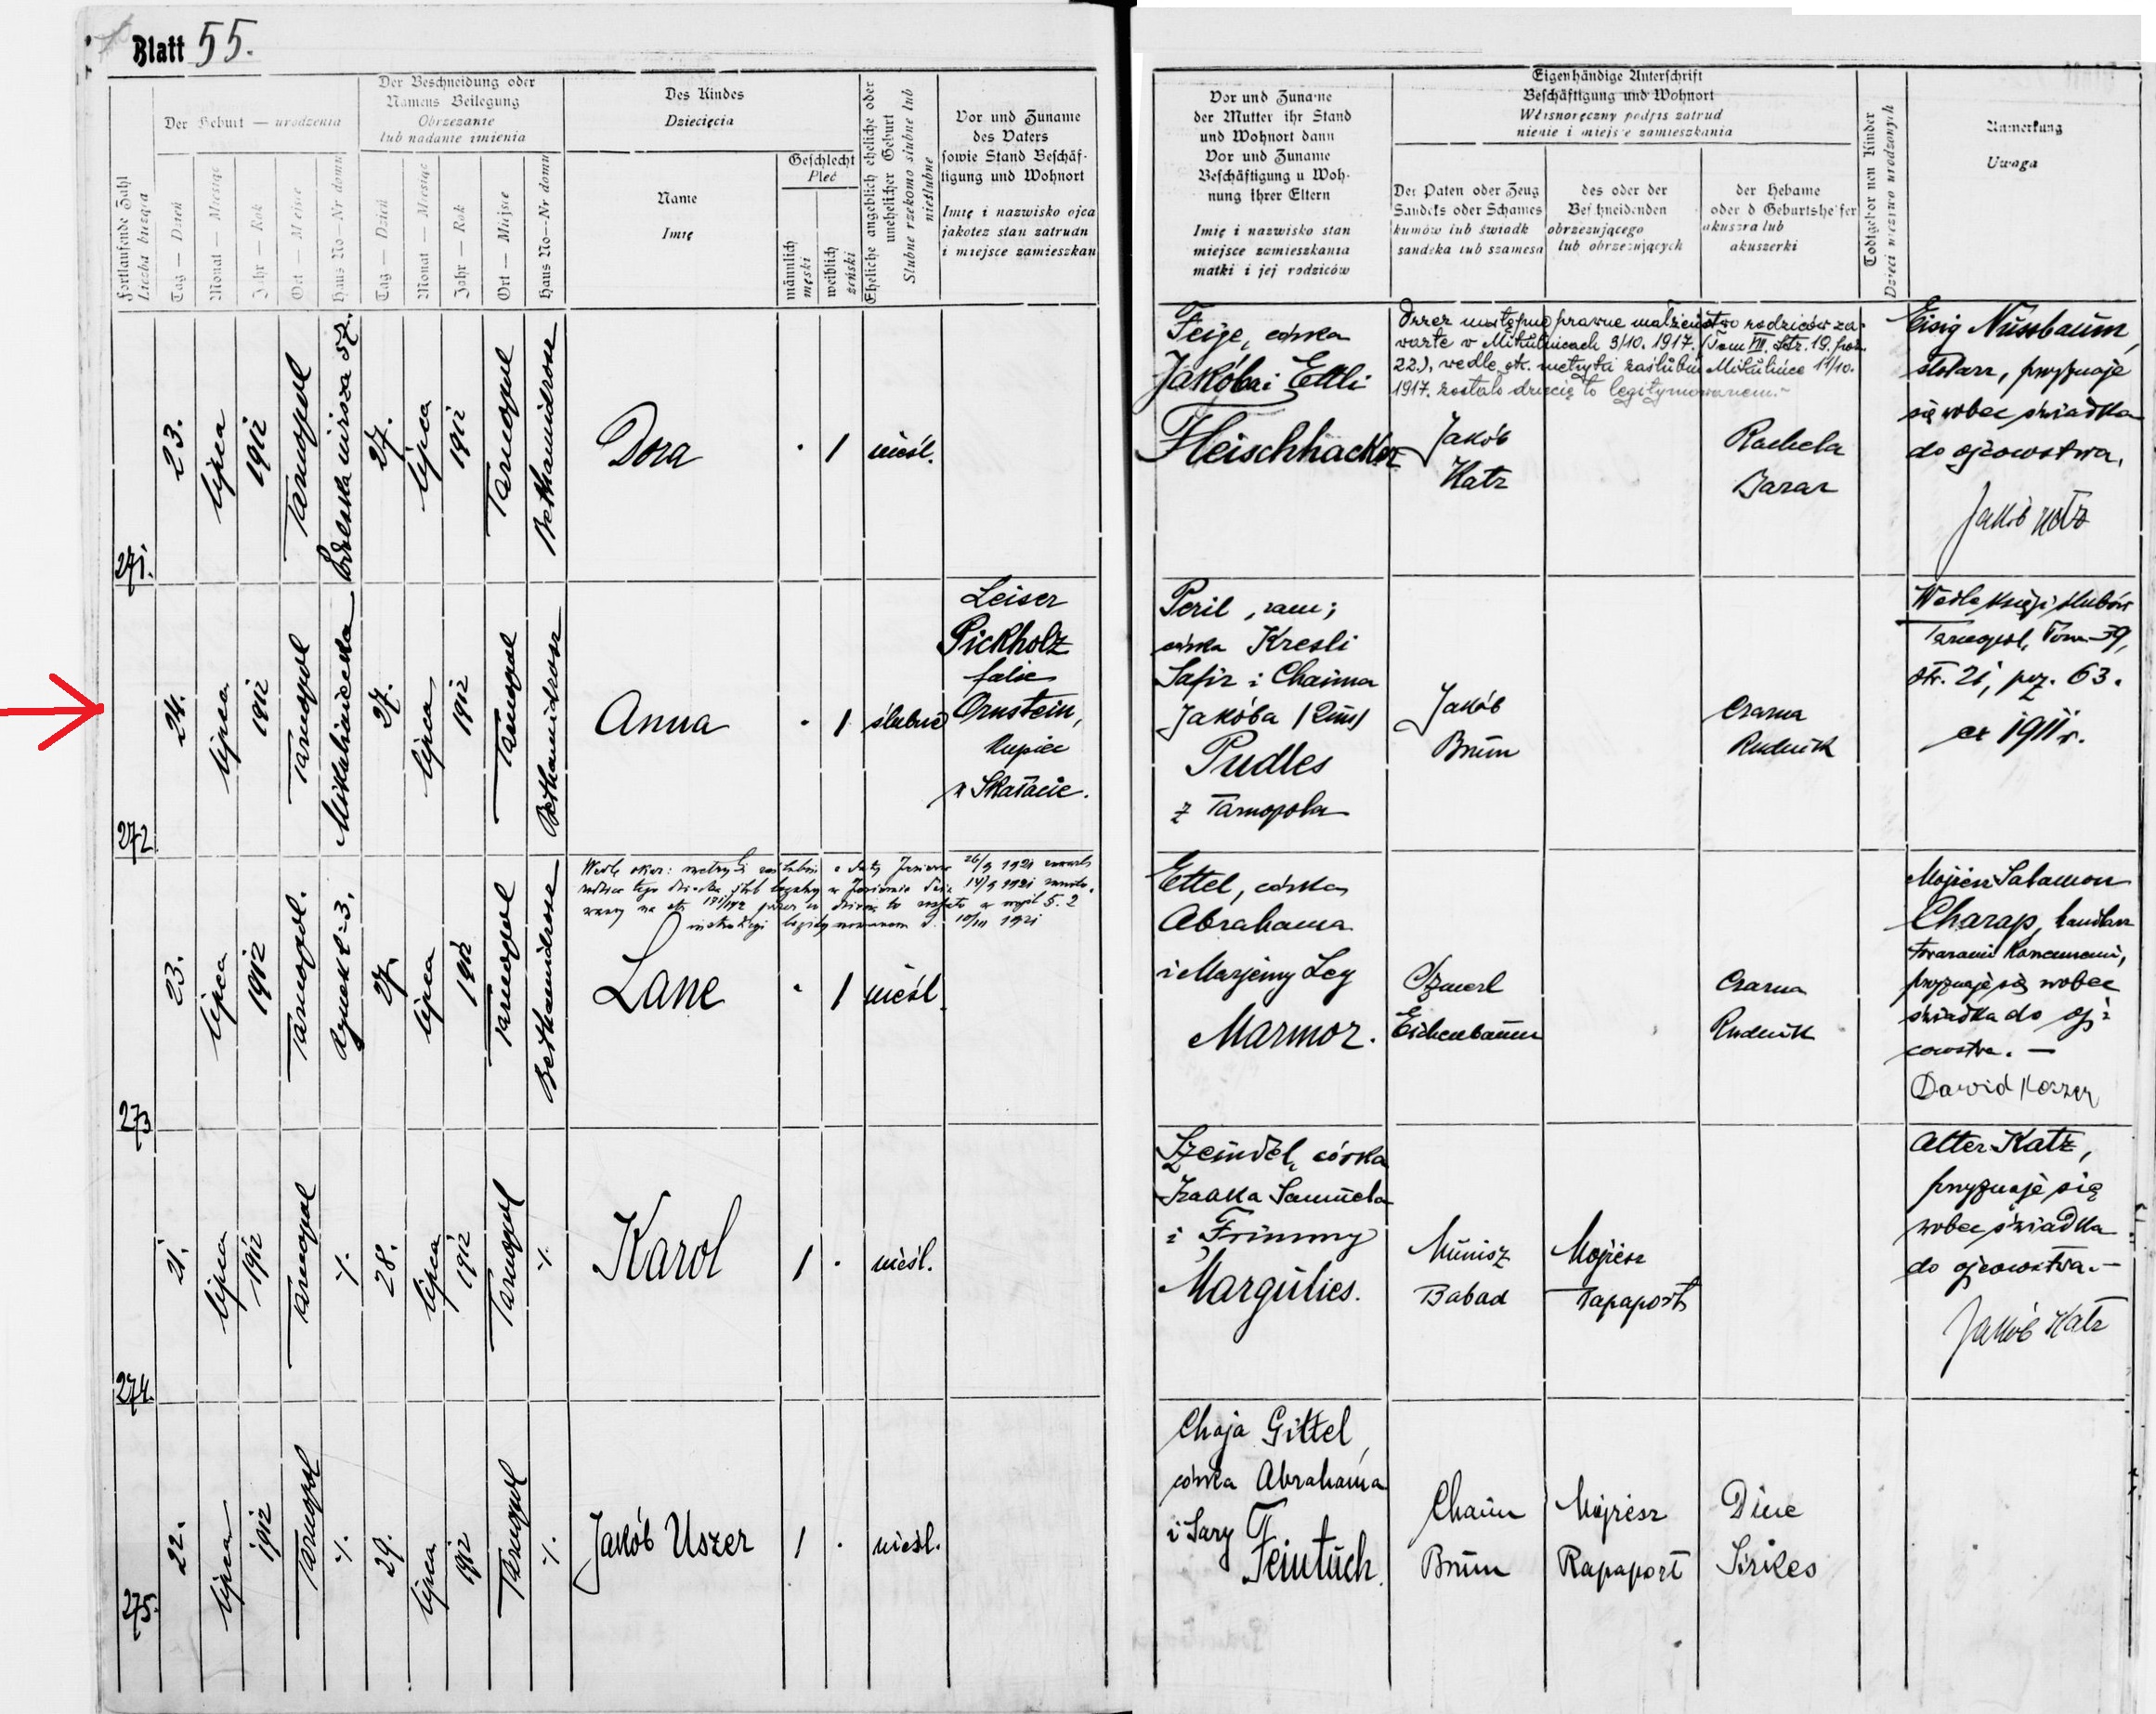 Blatt 55.
Der Geburt — urodzenia
Der Beschneidung oder
Namens Beilegung
Obrzezanie
lub nadanie imienia
Des Kindes
Dziecięcia
Eheliche angeblich eheliche oder
unehelicher Geburt
Ślubne rzekomo ślubne lub
nieślubne
Vor und Zuname
des Vaters
sowie Stand Beschäf-
tigung und Wohnort
Imię i nazwisko ojca
jakotez stan zatrudn
i miejsce zamieszkan
Fortlaufende Zahl
Liczba bieżąca
Tag — Dzień
Monat — Miesiąc
Jahr — Rok
Ort — Miejsce
Haus No—Nr domu
Tag — Dzień
Monat — Miesiąc
Jahr — Rok
Ort — Miejsce
Haus No—Nr domu
Name
Imię
Geschlecht
Płeć
männlich
męski
weiblich
żeński
Vor und Zuname
der Mutter ihr Stand
und Wohnort dann
Vor und Zuname
Beschäftigung u Woh-
nung ihrer Eltern
Imię i nazwisko stan
miejsce zamieszkania
matki i jej rodziców
Eigenhändige Unterschrift
Beschäftigung und Wohnort
Własnoręczny podpis zatrud
nienie i miejsce zamieszkania
Der Paten oder Zeug
Sandeks oder Schames
kumów lub świadk
sandeka lub szamesa
des oder der
Beschneidenden
obrzezującego
lub obrzezujących
der Hebame
oder d Geburtshelfer
akuszra lub
akuszerki
Todtgebornen Kinder
Dzieci nieżywo urodzonych
Anmerkung
Uwaga
271.
23.
lipca
1912
Tarnopol
27.
lipca
1912
Tarnopol
Bethamidrosn
Dora
1
nieśl.
Feige, córka
Jakóba i Ettli
Fleischhacker
Przez następne prawne małżeństwo rodziców za-
warte w Mikulincach 3/10. 1917. (Tom VII. Str. 19. poz.
22.), wedle metryki zaślubin Mikulińce 11/10.
1917. zostało dziecię to legitymowanem.-
Jakób
Katz
Rachela
Barar
Eisig Nussbaum,
stolarz, przyznaje
się wobec świadka
do ojcowstwa.
Jakób Katz
272
24.
lipca
1912
Tarnopol
Mikuliniecka
27.
lipca
1912
Tarnopol
Bethamidrosn
Anna
1
ślubne
Leiser
Pickholz
falic
Ornstein,
kupiec
w Skałacie.
Peril, zam;
córka Kresli
Safir i Chaima
Jakóba /2im/
Pudles
z Tarnopola
Jakób
Brüm
Czarna
Rudnik
Wedle księgi ślubów
Tarnopol, Tom 39,
str. 21, poz. 63.
ex 1911 r.
273
23.
lipca
1912
Tarnopol.
Rynek L=3.
27.
lipca
1912
Tarnopol
Bethamidrosn
Lane
1
nieśl.
Ettel, córka
Abrahama
i Marjemy Ley
Marmor.
Szmerl
Eichenbaum
Czarna
Rudnik
Mojżesz Salamon
Charap, handlarz
towarami
przyznaje się wobec
świadka do oj=
cowstwa. —
Dawid
274.
21.
lipca
1912
Tarnopol
·/.
28.
lipca
1912
Tarnopol
·/.
Karol
1
nieśl.
Szeindel, córka
Izaaka Samuela
i Frimmy
Margulies.
Münisz
Babad
Mojżesz
Rapaport
Alter Katz,
przyznaje się
wobec świadka
do ojcowstwa.—
Jakób Katz
275.
22.
lipca
1912
Tarnopol
·/.
29.
lipca
1912
Tarnopol
·/.
Jakób Uszer
1
nieśl.
Chaja Gittel,
córka Abrahama
i Sary
Feintuch.
Chaim
Brüm
Mojżesz
Rapaport
Dine
Sirkes